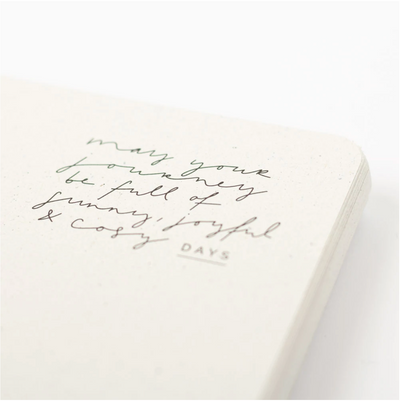 may your
journey
be full of
sunny, joyful
& cosy DAYS